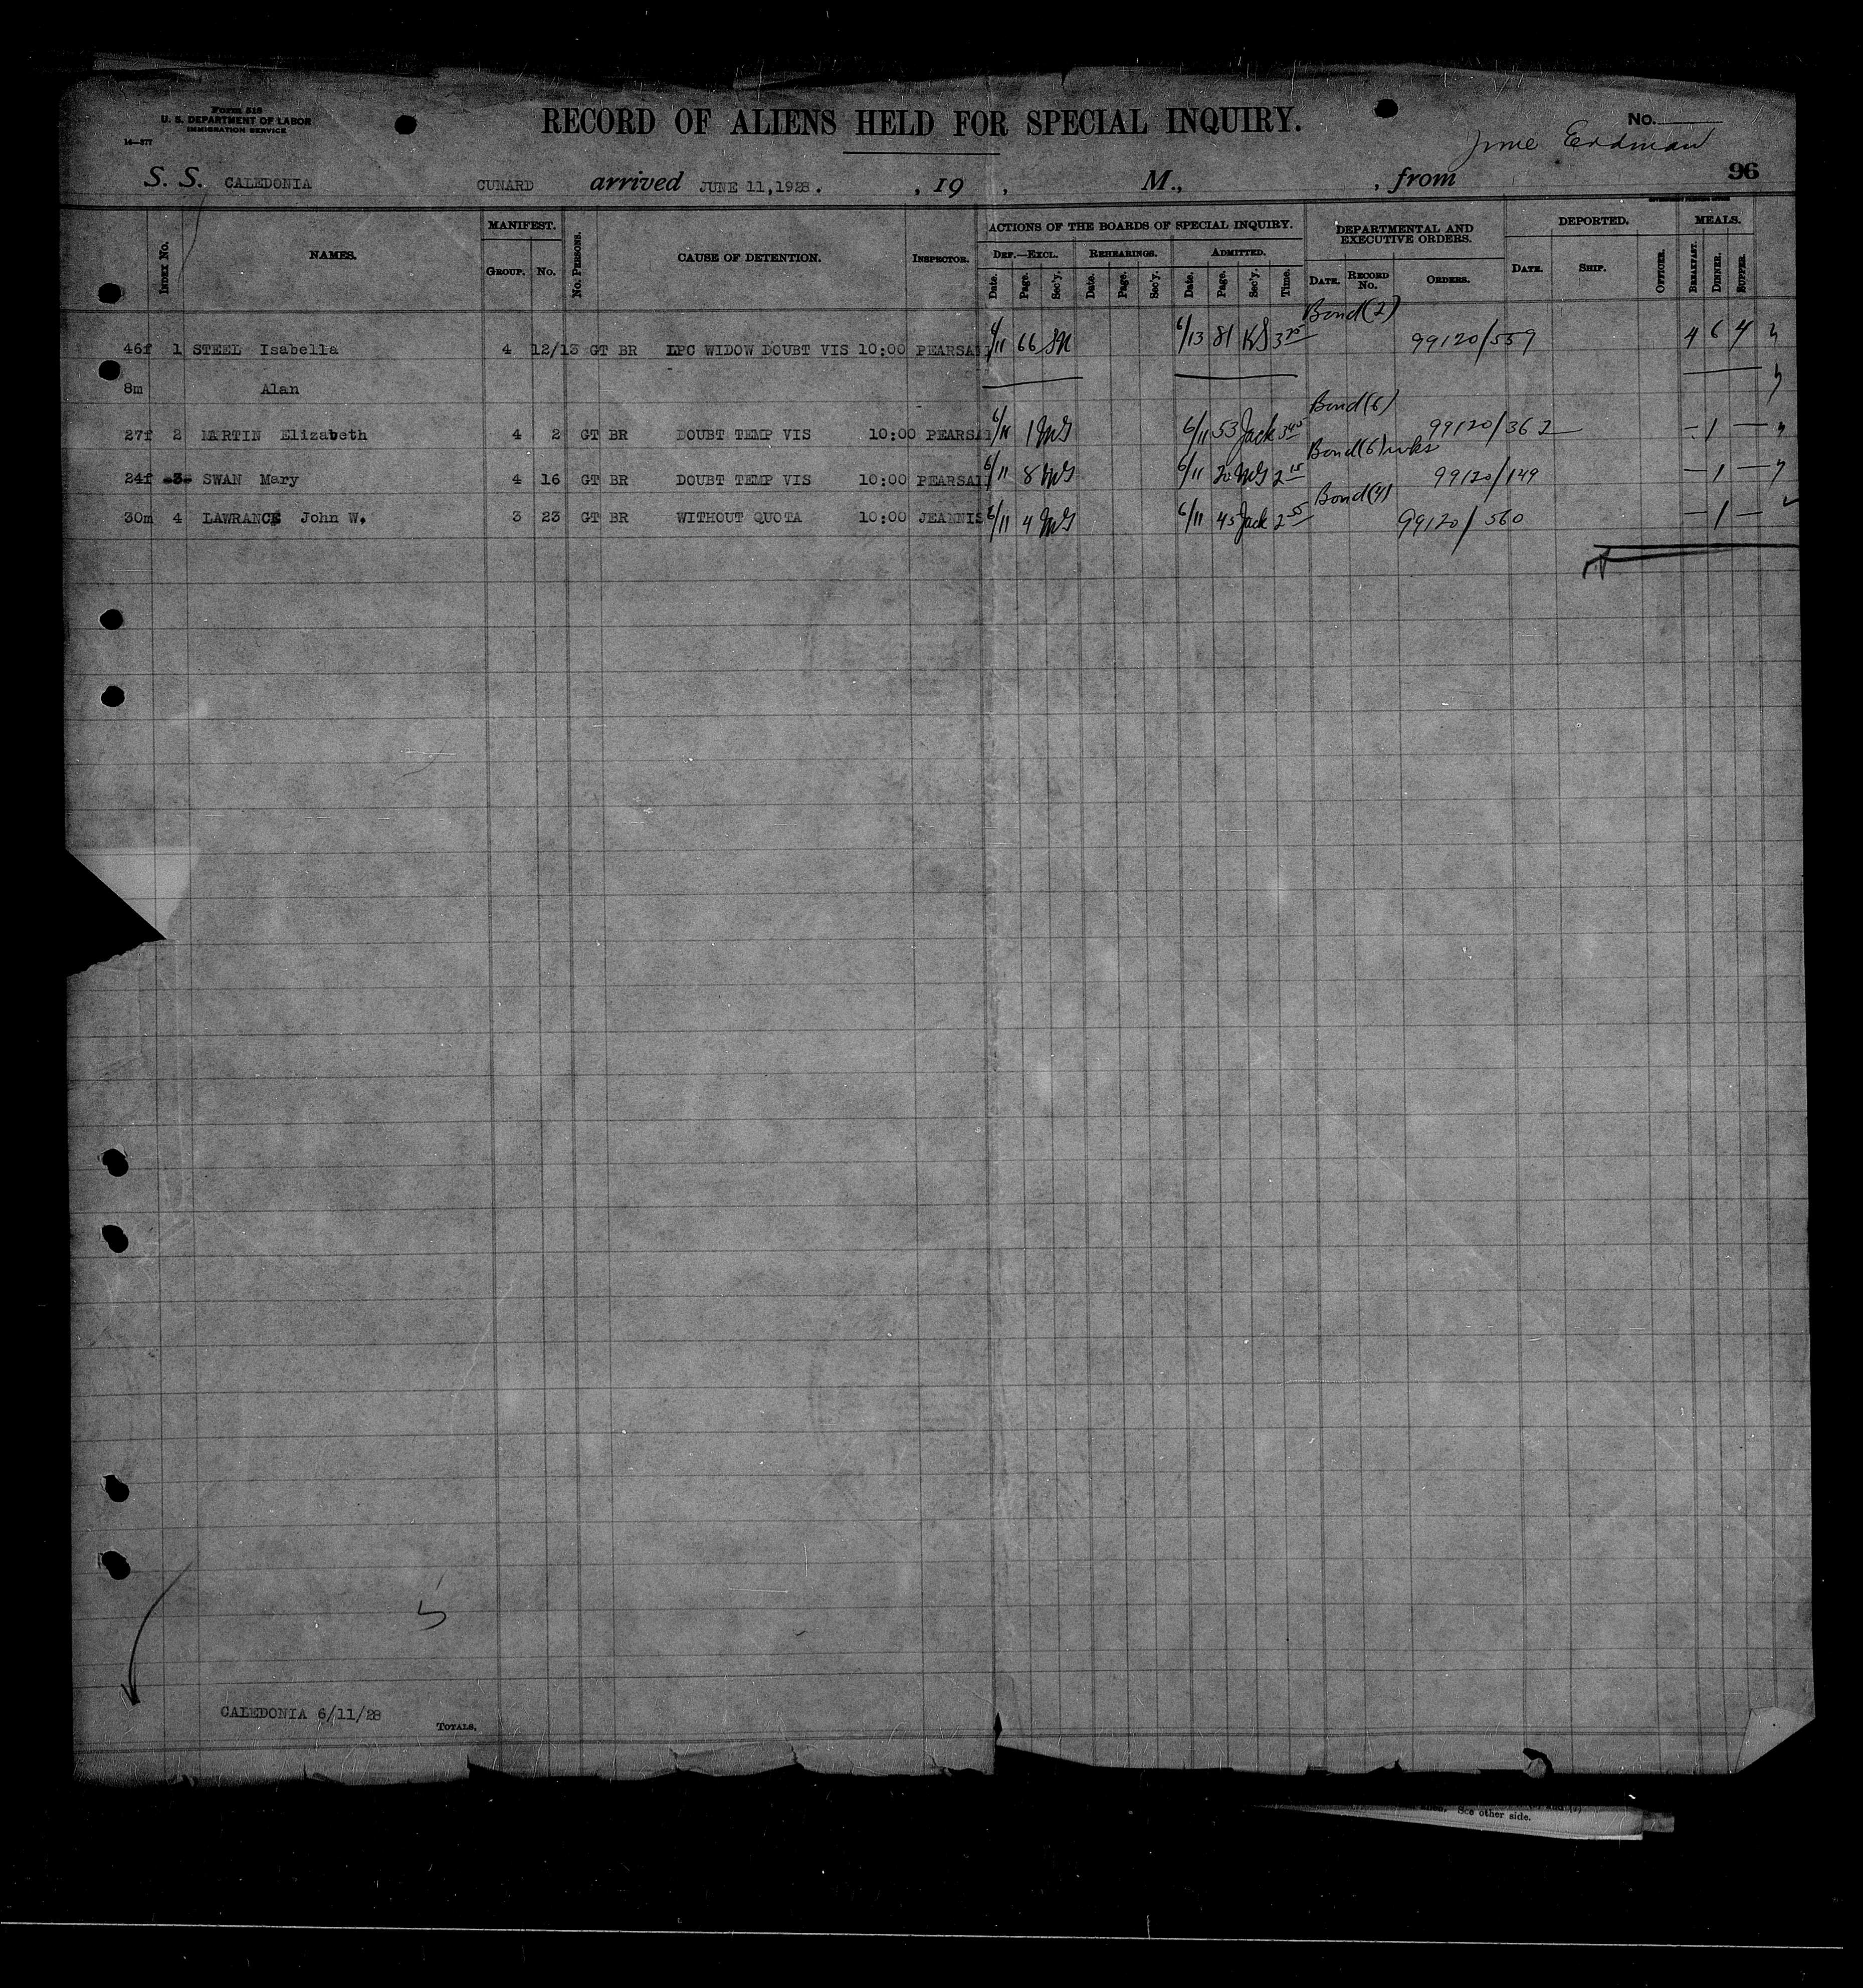 Form 518
U. S. DEPARTMENT OF LABOR
IMMIGRATION SERVICE
14—377
RECORD OF ALIENS HELD FOR SPECIAL INQUIRY.
No.
Erdman
S. S. CALEDONIA CUNARD arrived JUNE 11,1928. , 19 , M., , from 96
Index No. NAMES. MANIFEST. GROUP. No. No. PERSONS. CAUSE OF DETENTION. INSPECTOR.
ACTIONS OF THE BOARDS OF SPECIAL INQUIRY.
DEF.—EXCL. REHEARINGS. ADMITTED.
Date. Page. Sec'y. Date. Page. Sec'y. Date. Page. Sec'y. Time.
DEPARTMENTAL AND EXECUTIVE ORDERS.
DATE. RECORD No. ORDERS.
DEPORTED.
DATE. SHIP. OFFICER.
MEALS.
BREAKFAST. DINNER. SUPPER.
Bond(2)
46f 1 STEEL Isabella 4 12/13 GT BR LPC WIDOW DOUBT VIS 10:00 PEARSA 6/11 66 6/13 81 KS 99120/559 4 6 4
8m Alan
Bond(6)
27f 2 MARTIN Elizabeth 4 2 GT BR DOUBT TEMP VIS 10:00 PEARSA 6/11 1 6/11 53 Jack 3 45 99120/362 — 1 —
Bond(6)wks
24f 3 SWAN Mary 4 16 GT BR DOUBT TEMP VIS 10:00 PEARSA 6/11 8 6/11 20 2 15 99120/149 — 1 —
Bond(4)
30m 4 LAWRANCE John W. 3 23 GT BR WITHOUT QUOTA 10:00 JEANNIS 6/11 4 6/11 45 Jack 2 55 99120/560 — 1 —
5
CALEDONIA 6/11/28
TOTALS.
See other side.